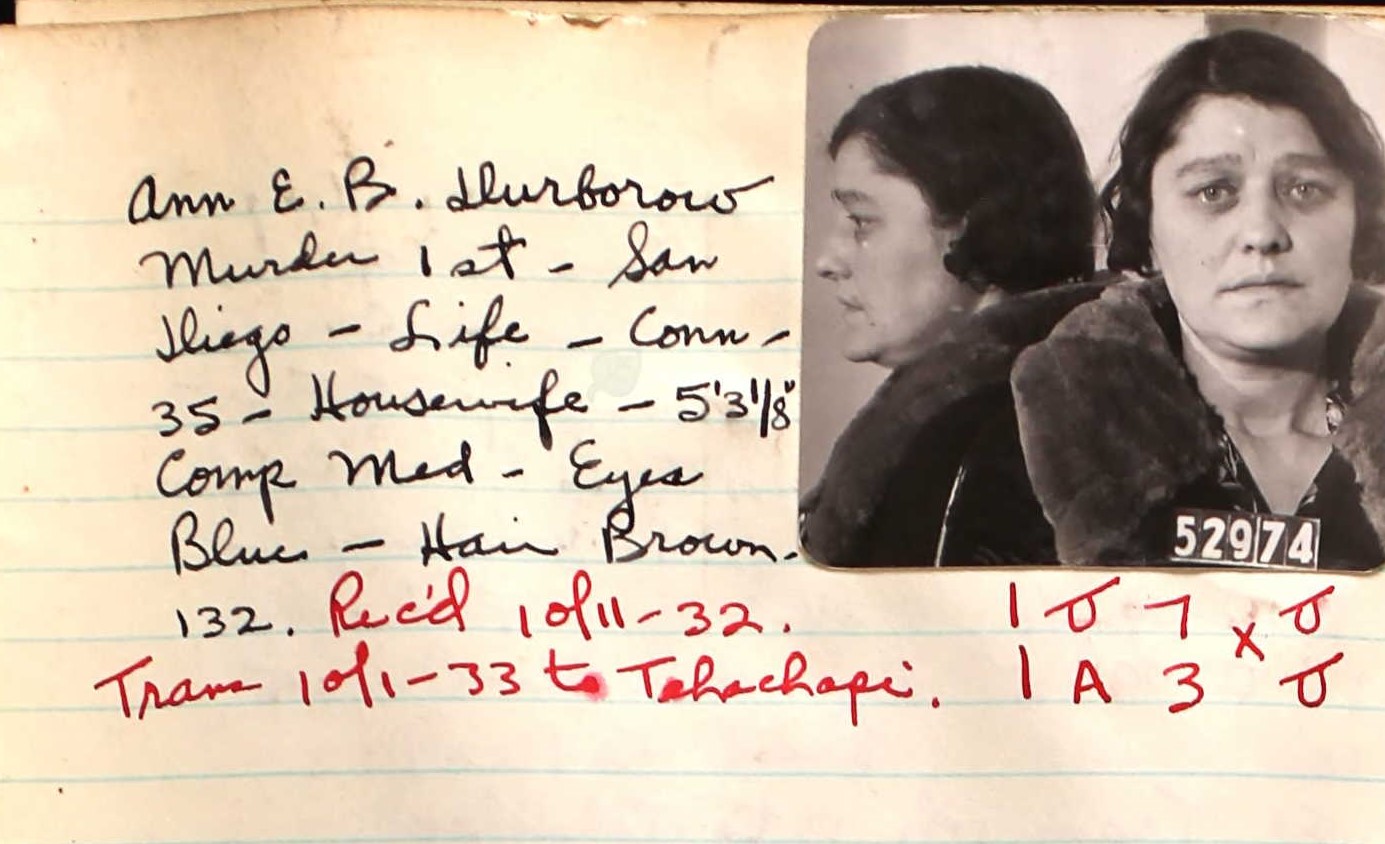 Ann E. B. Durborow
Murder 1st - San
Diego - Life - Conn -
35 - Housewife - 5'3 1/8"
Comp Med - Eyes
Blue - Hair Brown.
132. Rec'd 10/11-32.
Trans 10/1-33 to Tehachapi.
52974
1 U 7 x U
1 A 3 U